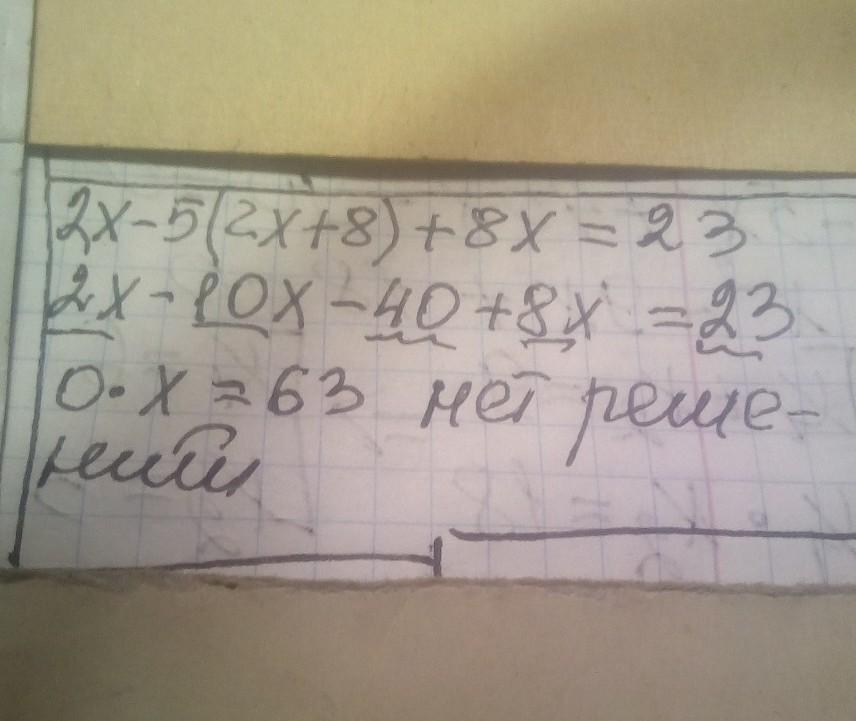 2x-5(2x+8)+8x=23
2x-10x-40+8x=23
0·x=63 нет реше-
ний